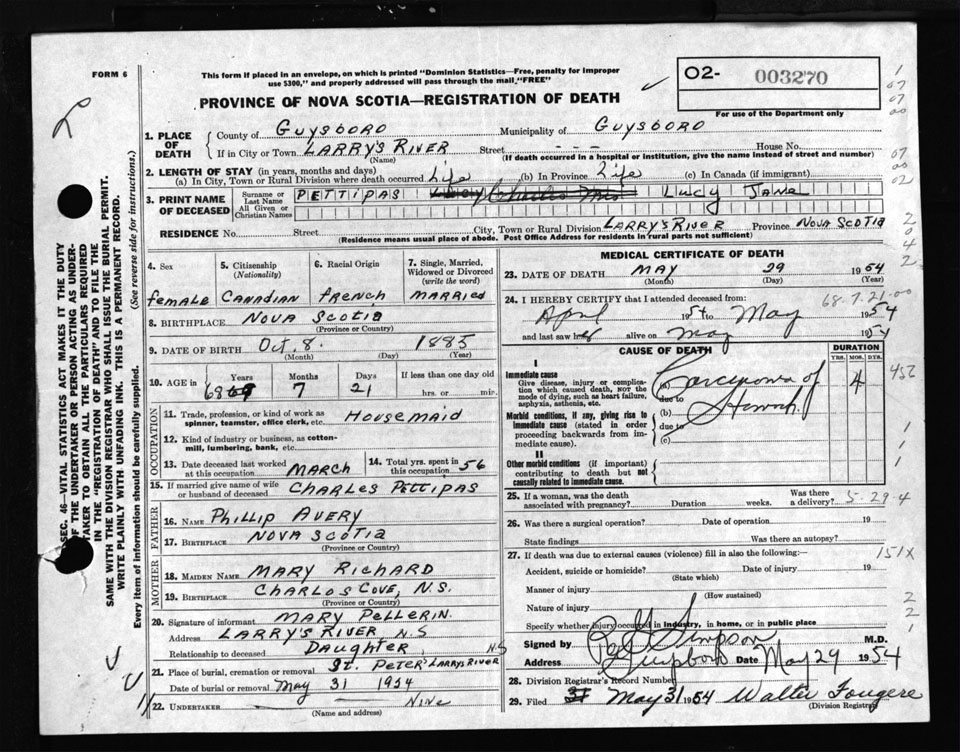 FORM 6
This form if placed in an envelope, on which is printed "Dominion Statistics—Free, penalty for improper
use $300," and properly addressed will pass through the mail "FREE"
02- 003270
For use of the Department only
PROVINCE OF NOVA SCOTIA—REGISTRATION OF DEATH
1. PLACE OF DEATH
County of GUYSBORO Municipality of GUYSBORO
If in City or Town LARRY'S RIVER Street - - - House No.
(Name) (If death occurred in a hospital or institution, give the name instead of street and number)
2. LENGTH OF STAY (in years, months and days)
(a) In City, Town or Rural Division where death occurred Life (b) In Province Life (c) In Canada (if immigrant)
3. PRINT NAME OF DECEASED
Surname or Last Name PETTIPAS Lucy JANE
All Given or Christian Names
RESIDENCE No. Street City, Town or Rural Division LARRY'S RIVER Province NOVA SCOTIA
(Residence means usual place of abode. Post Office Address for residents in rural parts not sufficient)
4. Sex female
5. Citizenship (Nationality) CANADIAN
6. Racial Origin french
7. Single, Married, Widowed or Divorced (write the word) MARRIED
8. BIRTHPLACE NOVA SCOTIA
(Province or Country)
9. DATE OF BIRTH Oct. 8. 1885
(Month) (Day) (Year)
10. AGE in Years 68 Months 7 Days 21 If less than one day old
hrs. or min.
OCCUPATION
11. Trade, profession, or kind of work as spinner, teamster, office clerk, etc. HOUSEMAID
12. Kind of industry or business, as cotton-mill, lumbering, bank, etc.
13. Date deceased last worked at this occupation MARCH
14. Total yrs. spent in this occupation 56
15. If married give name of wife or husband of deceased CHARLES PETTIPAS
FATHER
16. NAME PHILLIP AVERY
17. BIRTHPLACE NOVA SCOTIA
(Province or Country)
MOTHER
18. MAIDEN NAME MARY RICHARD
19. BIRTHPLACE CHARLOS COVE, N.S.
(Province or Country)
20. Signature of informant MARY PELLERIN.
Address LARRY'S RIVER N.S
Relationship to deceased DAUGHTER
21. Place of burial, cremation or removal ST. PETER LARRYS RIVER N.S
Date of burial or removal May 31 1954
22. UNDERTAKER
(Name and address)
MEDICAL CERTIFICATE OF DEATH
23. DATE OF DEATH MAY 29 1954
(Month) (Day) (Year)
68.7.21.00
24. I HEREBY CERTIFY that I attended deceased from:
April 1954 to May 1954
and last saw her alive on May 1954
CAUSE OF DEATH
DURATION
YRS. MOS. DYS.
I
Immediate cause
Give disease, injury or complication which caused death, NOT the mode of dying, such as heart failure, asphyxia, asthenia, etc.
(a) Carcinoma of Stomach 4
due to
(b)
Morbid conditions, if any, giving rise to immediate cause (stated in order proceeding backwards from immediate cause).
due to
(c)
II
Other morbid conditions (if important) contributing to death but not causally related to immediate cause.
25. If a woman, was the death associated with pregnancy? Duration weeks. Was there a delivery? 5-29-4
26. Was there a surgical operation? Date of operation 19
State findings Was there an autopsy?
27. If death was due to external causes (violence) fill in also the following:— 151X
Accident, suicide or homicide? Date of injury 19
(State which)
Manner of injury
(How sustained)
Nature of injury
Specify whether injury occurred in industry, in home, or in public place
Signed by Simpson M.D.
Address Date May 29 1954
28. Division Registrar's Record Number
29. Filed May 31 1954 Walter Fougere
(Division Registrar)
SEC. 46—VITAL STATISTICS ACT MAKES IT THE DUTY
OF THE UNDERTAKER OR PERSON ACTING AS UNDER-
TAKER TO OBTAIN ALL THE PARTICULARS REQUIRED
IN THE "REGISTRATION OF DEATH" AND TO FILE THE
SAME WITH THE DIVISION REGISTRAR WHO SHALL ISSUE THE BURIAL PERMIT.
WRITE PLAINLY WITH UNFADING INK. THIS IS A PERMANENT RECORD.
Every item of information should be carefully supplied. (See reverse side for instructions.)